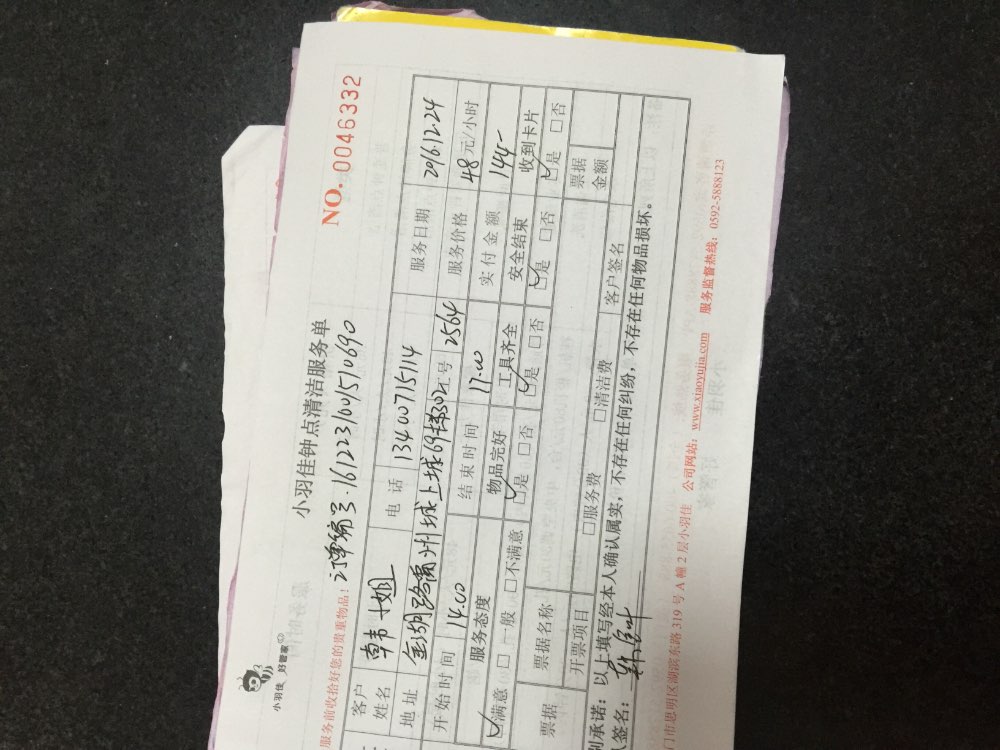 小羽佳 好管家
小羽佳钟点清洁服务单
NO. 0046332
服务前收拾好您的贵重物品: 订单编号·1612231601510690
客户姓名 韩小姐 电话 13400715114 服务日期 2016.12.24
地址 金湖路 城上城69 302 号 2564 服务价格 48元/小时
开始时间 14.00 结束时间 17.00 实付金额 144-
服务态度 物品完好 工具齐全 安全结束 收到卡片
☑满意 □一般 □不满意 ☑是 □否 ☑是 □否 ☑是 □否 ☑是 □否
票据 票据名称 票据金额
开票项目 □服务费 □清洁费 客户签名
承诺: 以上填写经本人确认属实, 不存在任何纠纷, 不存在任何物品损坏。
签名:
门市思明区湖滨东路 319 号 A 幢 2 层小羽佳 公司网站: www.xiaoyujia.com 服务监督热线: 0592-5888123